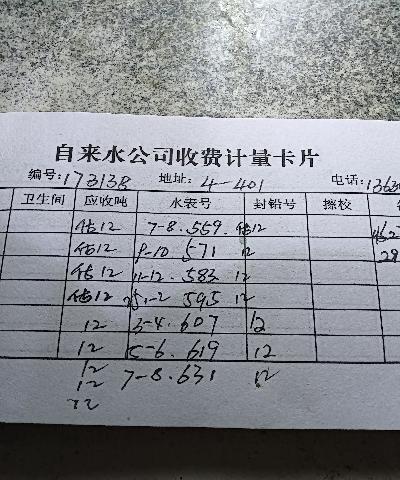 自来水公司收费计量卡片
编号:173138 地址: 4-401 电话:1363
卫生间 应收吨 水表号 封铅号 擦校
估12 7-8.559. 估12
估12 9-10 571 12 29
估12 11-12.583 12
估12 25.1-2 595 12
12 3-4.607 12
12 5-6.619 12
12 7-8.631 12
12
12